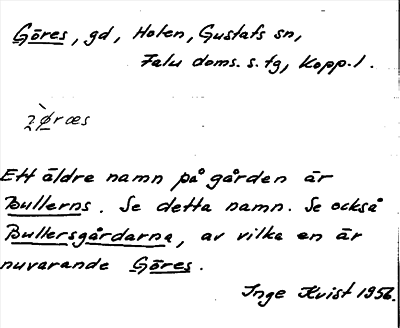 Göres, gd, Holen, Gustafs sn,
Falu doms. s. tg, Kopp. l.
Ett äldre namn på gården är
Bullerns. Se detta namn. Se också
Bullersgårdarna, av vilka en är
nuvarande Göres.
Inge Kvist 1956.